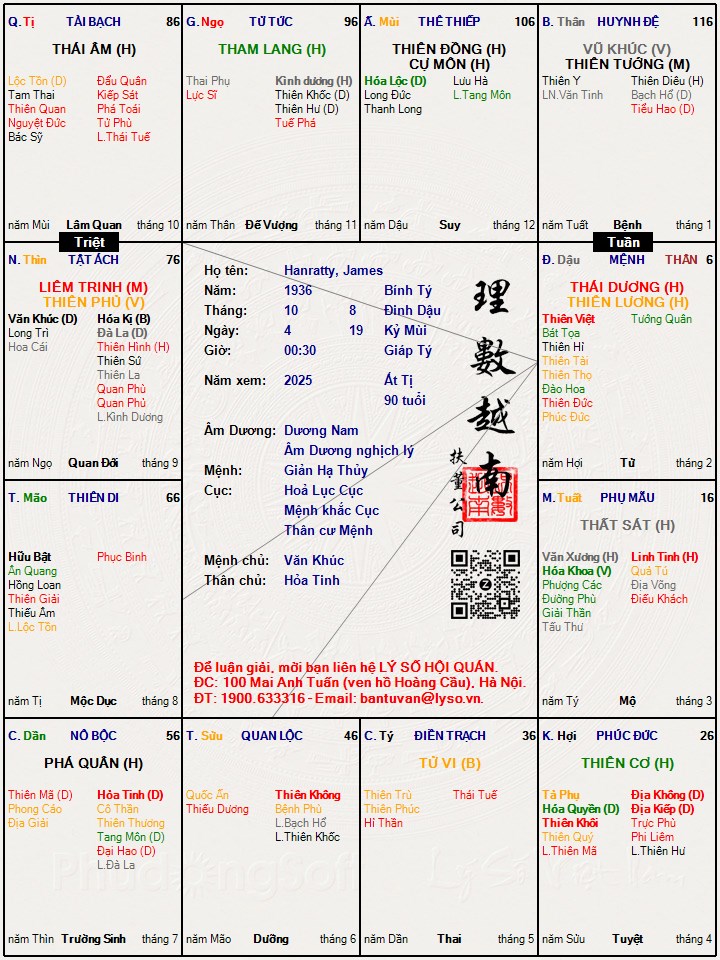 Q. Tị TÀI BẠCH 86
THÁI ÂM (H)
Lộc Tồn (Đ) Đẩu Quân
Tam Thai Kiếp Sát
Thiên Quan Phá Toái
Nguyệt Đức Tử Phù
Bác Sỹ L.Thái Tuế
năm Mùi Lâm Quan tháng 10
G. Ngọ TỬ TỨC 96
THAM LANG (H)
Thai Phụ Kình dương (H)
Lực Sĩ Thiên Khốc (Đ)
Thiên Hư (Đ)
Tuế Phá
năm Thân Đế Vượng tháng 11
Ấ. Mùi THÊ THIẾP 106
THIÊN ĐỒNG (H)
CỰ MÔN (H)
Hóa Lộc (Đ) Lưu Hà
Long Đức L.Tang Môn
Thanh Long
năm Dậu Suy tháng 12
B. Thân HUYNH ĐỆ 116
VŨ KHÚC (V)
THIÊN TƯỚNG (M)
Thiên Y Thiên Diêu (H)
LN.Văn Tinh Bạch Hổ (Đ)
Tiểu Hao (D)
năm Tuất Bệnh tháng 1
Triệt
Tuần
N. Thìn TẬT ÁCH 76
LIÊM TRINH (M)
THIÊN PHỦ (V)
Văn Khúc (Đ) Hóa Kị (B)
Long Trì Đà La (Đ)
Hoa Cái Thiên Hình (H)
Thiên Sứ
Thiên La
Quan Phù
Quan Phủ
L.Kình Dương
năm Ngọ Quan Đới tháng 9
Họ tên: Hanratty, James
Năm: 1936 Bính Tý
Tháng: 10 8 Đinh Dậu
Ngày: 4 19 Kỷ Mùi
Giờ: 00:30 Giáp Tý
Năm xem: 2025 Ất Tị
90 tuổi
Âm Dương: Dương Nam
Âm Dương nghịch lý
Mệnh: Giản Hạ Thủy
Cục: Hoả Lục Cục
Mệnh khắc Cục
Thân cư Mệnh
Mệnh chủ: Văn Khúc
Thân chủ: Hỏa Tinh
理數越南
扶董公司
Để luận giải, mời bạn liên hệ LÝ SỐ HỘI QUÁN.
ĐC: 100 Mai Anh Tuấn (ven hồ Hoàng Cầu), Hà Nội.
ĐT: 1900.633316 - Email: bantuvan@lyso.vn.
Đ. Dậu MỆNH THÂN 6
THÁI DƯƠNG (H)
THIÊN LƯƠNG (H)
Thiên Việt Tướng Quân
Bát Tọa
Thiên Hỉ
Thiên Tài
Thiên Thọ
Đào Hoa
Thiên Đức
Phúc Đức
năm Hợi Tử tháng 2
T. Mão THIÊN DI 66
Hữu Bật Phục Binh
Ân Quang
Hồng Loan
Thiên Giải
Thiếu Âm
L.Lộc Tồn
năm Tị Mộc Dục tháng 8
M. Tuất PHỤ MẪU 16
THẤT SÁT (H)
Văn Xương (H) Linh Tinh (H)
Hóa Khoa (V) Quả Tú
Phượng Các Địa Võng
Đường Phù Điếu Khách
Giải Thần
Tấu Thư
năm Tý Mộ tháng 3
C. Dần NÔ BỘC 56
PHÁ QUÂN (H)
Thiên Mã (Đ) Hỏa Tinh (Đ)
Phong Cáo Cô Thần
Địa Giải Thiên Thương
Tang Môn (Đ)
Đại Hao (Đ)
L.Đà La
năm Thìn Trường Sinh tháng 7
T. Sửu QUAN LỘC 46
Quốc Ấn Thiên Không
Thiếu Dương Bệnh Phù
L.Bạch Hổ
L.Thiên Khốc
năm Mão Dưỡng tháng 6
C. Tý ĐIỀN TRẠCH 36
TỬ VI (B)
Thiên Trù Thái Tuế
Thiên Phúc
Hỉ Thần
năm Dần Thai tháng 5
K. Hợi PHÚC ĐỨC 26
THIÊN CƠ (H)
Tả Phụ Địa Không (Đ)
Hóa Quyền (D) Địa Kiếp (Đ)
Thiên Khôi Trực Phù
Thiên Quý Phi Liêm
L.Thiên Mã L.Thiên Hư
năm Sửu Tuyệt tháng 4